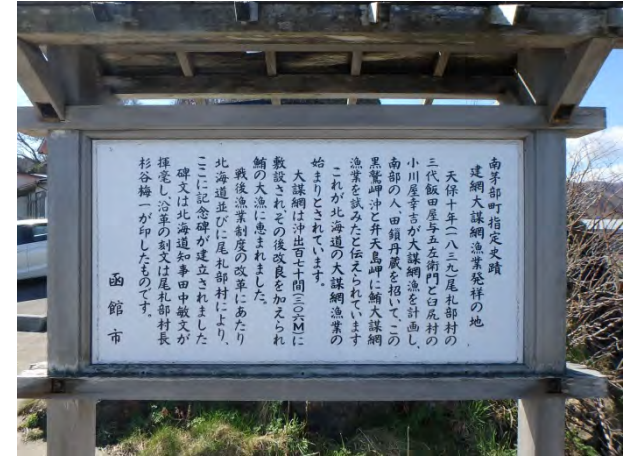 南茅部町指定史蹟
建網大謀網漁業発祥の地
天保十年(一八三九)尾札部村の
三代飯田屋与五左衛門と臼尻村の
小川屋幸吉が大謀網漁を計画し、
南部の人、田鎖丹蔵を招いて、この
黒鷲岬沖と弁天島岬に鮪大謀網
漁業を試みたと伝えられています
これが北海道の大謀網漁業の
始まりとされています。
大謀網は沖出百七十間(三〇六M)に
敷設されその後改良を加えられ
鮪の大漁に恵まれました。
戦後漁業制度の改革にあたり
北海道並びに尾札部村により、
ここに記念碑が建立されました
碑文は北海道知事田中敏文が
揮毫し沿革の刻文は尾札部村長
杉谷梅一が印したものです。
函館市